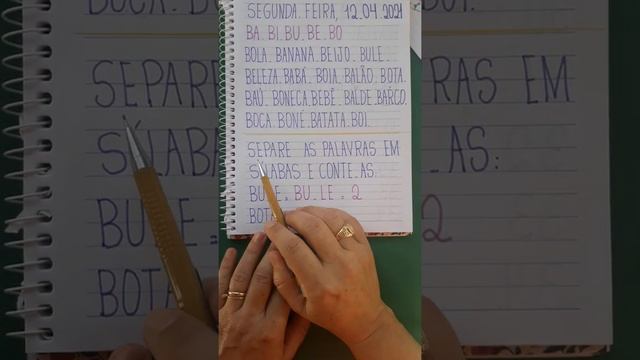 SEGUNDA. FEIRA, 12.04.2021
BA. BI. BU. BE. BO
BOLA. BANANA. BEIJO. BULE.
BELEZA. BABÁ. BOIA. BALÃO. BOTA.
BAÚ. BONECA. BEBÊ. BALDE. BARCO.
BOCA. BONÉ. BATATA. BOI.
SEPARE AS PALAVRAS EM
SÍLABAS E CONTE-AS:
BULE = BU. LE = 2
BOTA